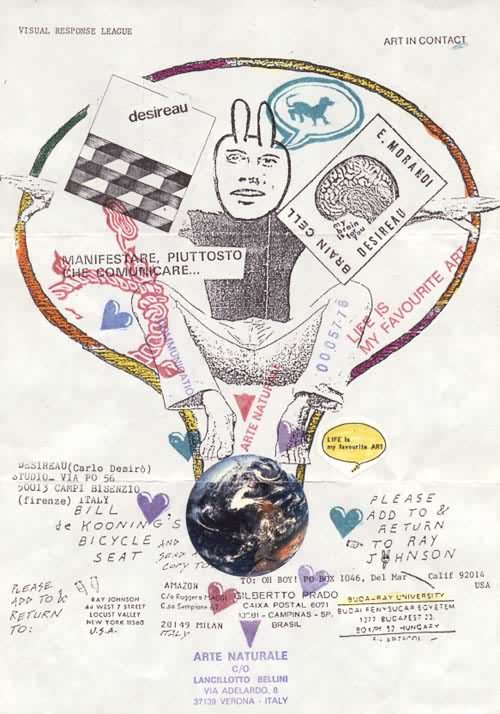 VISUAL RESPONSE LEAGUE
ART IN CONTACT
desireau
E. MORANDI
my
brain
is for
you
BRAIN CELL
DESIREAU
MANIFESTARE, PIUTTOSTO
CHE COMUNICARE...
LIFE IS
MY FAVOURITE ART
ARTE NATURALE
LIFE is
my favourite ART
DESIREAU(Carlo Desirò)
STUDIO_ VIA PO 56
50013 CAMPI BISENZIO
(firenze) ITALY
BILL
de KOONING'S
BICYCLE AND
SEAT SEND A
COPY TO
PLEASE
ADD TO &
RETURN
TO RAY
JOHNSON
TO: OH BOY! PO BOX 1046, Del Mar Calif 92014
USA
PLEASE
ADD TO &
RETURN
TO:
RAY JOHNSON
44 WEST 7 STREET
LOCUST VALLEY
NEW YORK 11560
U.S.A.
AMAZON
C/o Ruggero
C.so Sempione
20149 MILAN
ITALY
GILBERTTO PRADO
CAIXA POSTAL 6071
CAMPINAS - SP.
BRASIL
BUDA-RAY UNIVERSITY
BUDAI FENYSUGAR EGYETEM
1277 BUDAPEST 23.
HUNGARY
ARTE NATURALE
C/O
LANCILLOTTO BELLINI
VIA ADELARDO, 8
37139 VERONA - ITALY